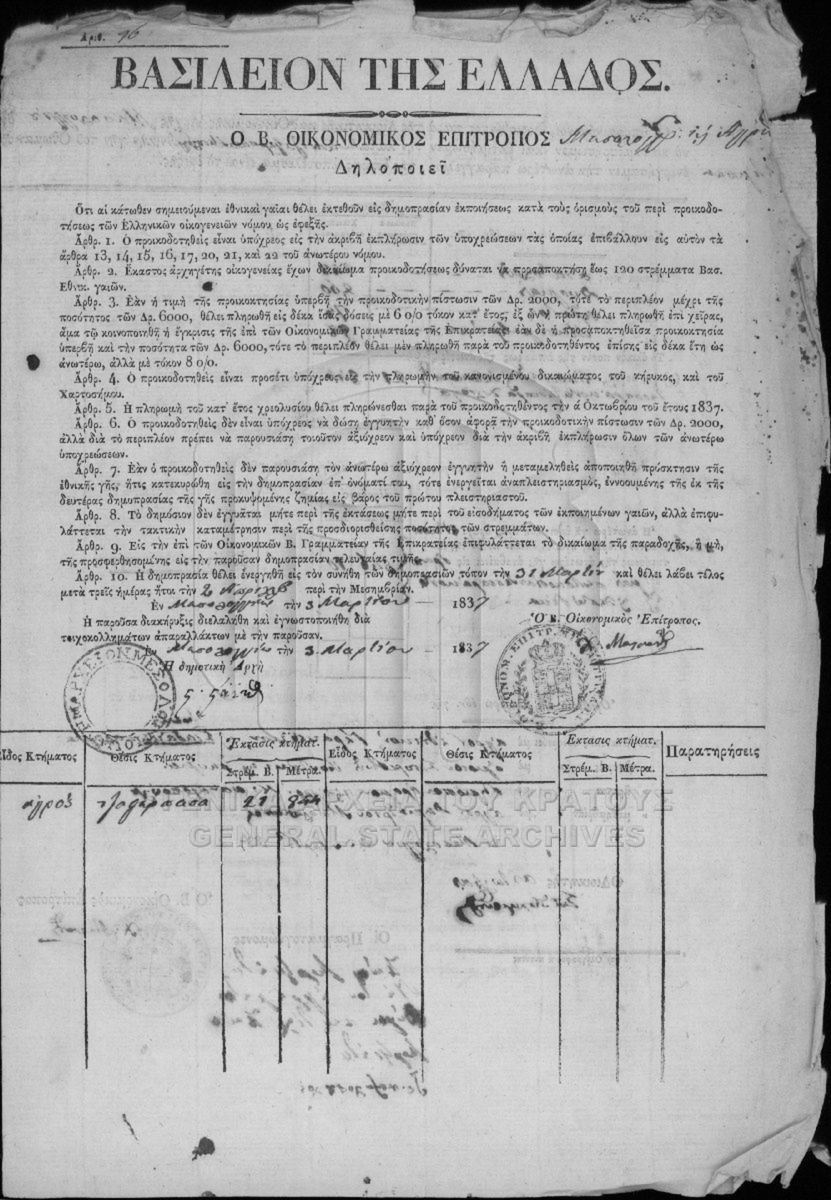 Αριθ. 16
ΒΑΣΙΛΕΙΟΝ ΤΗΣ ΕΛΛΑΔΟΣ.
Ο Β. ΟΙΚΟΝΟΜΙΚΟΣ ΕΠΙΤΡΟΠΟΣ
Δηλοποιεῖ
Ὅτι αἱ κάτωθεν σημειούμεναι ἐθνικαὶ γαῖαι θέλει ἐκτεθοῦν εἰς δημοπρασίαν ἐκποιήσεως κατὰ τοὺς ὁρισμοὺς τοῦ περὶ προικοδο-
τήσεως τῶν Ἑλληνικῶν οἰκογενειῶν νόμου, ὡς ἐφεξῆς.
Ἄρθρ. 1. Ὁ προικοδοτηθεὶς εἶναι ὑπόχρεος εἰς τὴν ἀκριβῆ ἐκπλήρωσιν τῶν ὑποχρεώσεων τὰς ὁποίας ἐπιβάλλουν εἰς αὐτὸν τὰ
ἄρθρα 13, 14, 15, 16, 17, 20, 21, καὶ 22 τοῦ ἀνωτέρου νόμου.
Ἄρθρ. 2. Ἕκαστος ἀρχηγέτης οἰκογενείας ἔχων δικαίωμα προικοδοτήσεως δύναται νὰ προσαποκτήσῃ ἕως 120 στρέμματα Βασ.
Ἐθνικ. γαιῶν.
Ἄρθρ. 3. Ἐὰν ἡ τιμὴ τῆς προικοκτησίας ὑπερβῇ τὴν προικοδοτικὴν πίστωσιν τῶν Δρ. 2000, τότε τὸ περιπλέον μέχρι τῆς
ποσότητος τῶν Δρ. 6000, θέλει πληρωθῆ εἰς δέκα ἴσας δόσεις μὲ 6 ο/ο τόκον κατ' ἔτος, ἐξ ὧν ἡ πρώτη θέλει πληρωθῆ ἐπὶ χεῖρας,
ἅμα τῷ κοινοποιηθῇ ἡ ἔγκρισις τῆς ἐπὶ τῶν Οἰκονομικῶν Γραμματείας τῆς Ἐπικρατείας ἐὰν δὲ ἡ προσαποκτηθεῖσα προικοκτησία
ὑπερβῇ καὶ τὴν ποσότητα τῶν Δρ. 6000, τότε τὸ περιπλέον θέλει μὲν πληρωθῆ παρὰ τοῦ προικοδοτηθέντος ἐπίσης εἰς δέκα ἔτη ὡς
ἀνωτέρω, ἀλλὰ μὲ τόκον 8 ο/ο.
Ἄρθρ. 4. Ὁ προικοδοτηθεὶς εἶναι προσέτι ὑπόχρεος εἰς τὴν πληρωμὴν τοῦ κανονισμένου δικαιώματος τοῦ κήρυκος, καὶ τοῦ
Χαρτοσήμου.
Ἄρθρ. 5. Ἡ πληρωμὴ τοῦ κατ' ἔτος χρεολυσίου θέλει πληρώνεσθαι παρὰ τοῦ προικοδοτηθέντος τὴν ά Ὀκτωβρίου τοῦ ἔτους 1837.
Ἄρθρ. 6. Ὁ προικοδοτηθεὶς δὲν εἶναι ὑπόχρεος νὰ δώσῃ ἐγγυητὴν καθ' ὅσον ἀφορᾷ τὴν προικοδοτικὴν πίστωσιν τῶν Δρ. 2000,
ἀλλὰ διὰ τὸ περιπλέον πρέπει νὰ παρουσιάσῃ τοιοῦτον ἀξιόχρεον καὶ ὑπόχρεον διὰ τὴν ἀκριβῆ ἐκπλήρωσιν ὅλων τῶν ἀνωτέρω
ὑποχρεώσεων.
Ἄρθρ. 7. Ἐὰν ὁ προικοδοτηθεὶς δὲν παρουσιάσῃ τὸν ἀνωτέρω ἀξιόχρεον ἐγγυητὴν ἢ μεταμεληθεὶς ἀποποιηθῇ πρόσκτησιν τῆς
ἐθνικῆς γῆς, ἥτις κατεκυρώθη εἰς τὴν δημοπρασίαν ἐπ' ὀνόματί του, τότε ἐνεργεῖται ἀναπλειστηριασμὸς, ἐννοουμένης τῆς ἐκ τῆς
δευτέρας δημοπρασίας τῆς γῆς προκυψομένης ζημίας εἰς βάρος τοῦ πρώτου πλειστηριαστοῦ.
Ἄρθρ. 8. Τὸ δημόσιον δὲν ἐγγυᾶται μήτε περὶ τῆς ἐκτάσεως μήτε περὶ τοῦ εἰσοδήματος τῶν ἐκποιημένων γαιῶν, ἀλλὰ ἐπιφυ-
λάττεται τὴν τακτικὴν καταμέτρησιν περὶ τῆς προσδιορισθείσης ποσότητος τῶν στρεμμάτων.
Ἄρθρ. 9. Εἰς τὴν ἐπὶ τῶν Οἰκονομικῶν Β. Γραμματείαν τῆς Ἐπικρατείας ἐπιφυλάττεται τὸ δικαίωμα τῆς παραδοχῆς, ἢ μὴ,
τῆς προσφερθησομένης εἰς τὴν παροῦσαν δημοπρασίαν τελευταίας τιμῆς.
Ἄρθρ. 10. Ἡ δημοπρασία θέλει ἐνεργηθῆ εἰς τὸν συνήθη τῶν δημοπρασιῶν τόπον τὴν 31 Μαρτίου καὶ θέλει λάβει τέλος
μετὰ τρεῖς ἡμέρας ἤτοι τὴν 2 Ἀπριλίου περὶ τὴν Μεσημβρίαν.
Ἐν Μεσολογγίῳ τὴν 3 Μαρτίου 1837
Ὁ Β. Οἰκονομικὸς Ἐπίτροπος.
Ἡ παροῦσα διακήρυξις διελαλήθη καὶ ἐγνωστοποιήθη διὰ
τοιχοκολλημάτων ἀπαραλλάκτων μὲ τὴν παροῦσαν.
Ἐν Μεσολογγίῳ τὴν 3 Μαρτίου 1837
Ἡ δημοτικὴ Ἀρχὴ
Εἶδος Κτήματος Θέσις Κτήματος Ἔκτασις κτήματ. Εἶδος Κτήματος Θέσις Κτήματος Ἔκτασις κτήματ. Παρατηρήσεις
Στρέμ. Β. Μέτρα. Στρέμ. Β. Μέτρα.
ἀγρὸς
ΓΕΝΙΚΑ ΑΡΧΕΙΑ ΤΟΥ ΚΡΑΤΟΥΣ
GENERAL STATE ARCHIVES